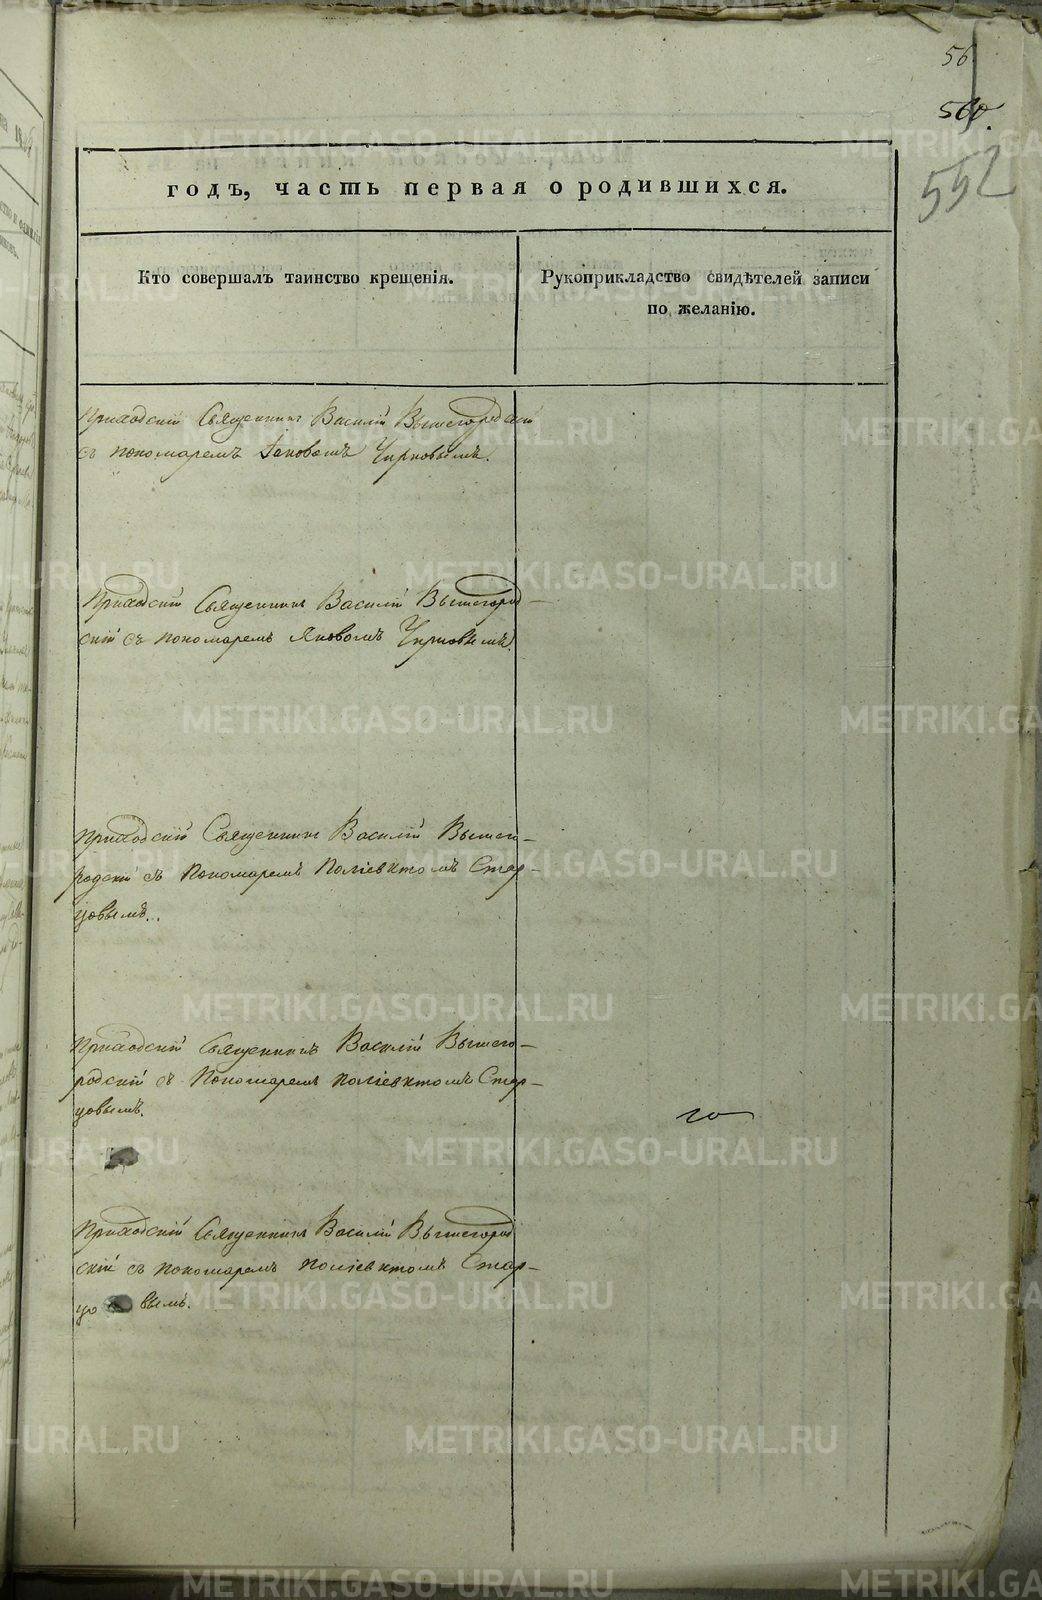 56
560.
552
годъ, часть первая о родившихся.
Кто совершалъ таинство крещенія.
Рукоприкладство свидѣтелей записи
по желанію.
Приходскій Священникъ Василій Вышегородскій
съ пономаремъ Іаковомъ Чирковымъ.
Приходскій Священникъ Василій Вышегород-
скій съ пономаремъ Яковомъ Чирковымъ.
Приходскій Священникъ Василій Вышего-
родскій съ Пономаремъ Поліевктомъ Стар-
цовымъ.
Приходскій Священникъ Василій Вышего-
родскій съ Пономаремъ Поліевктомъ Стар-
цовымъ.
го
Приходскій Священникъ Василій Вышегород
скій съ пономаремъ Поліевктомъ Стар-
цо вымъ.
METRIKI.GASO-URAL.RU